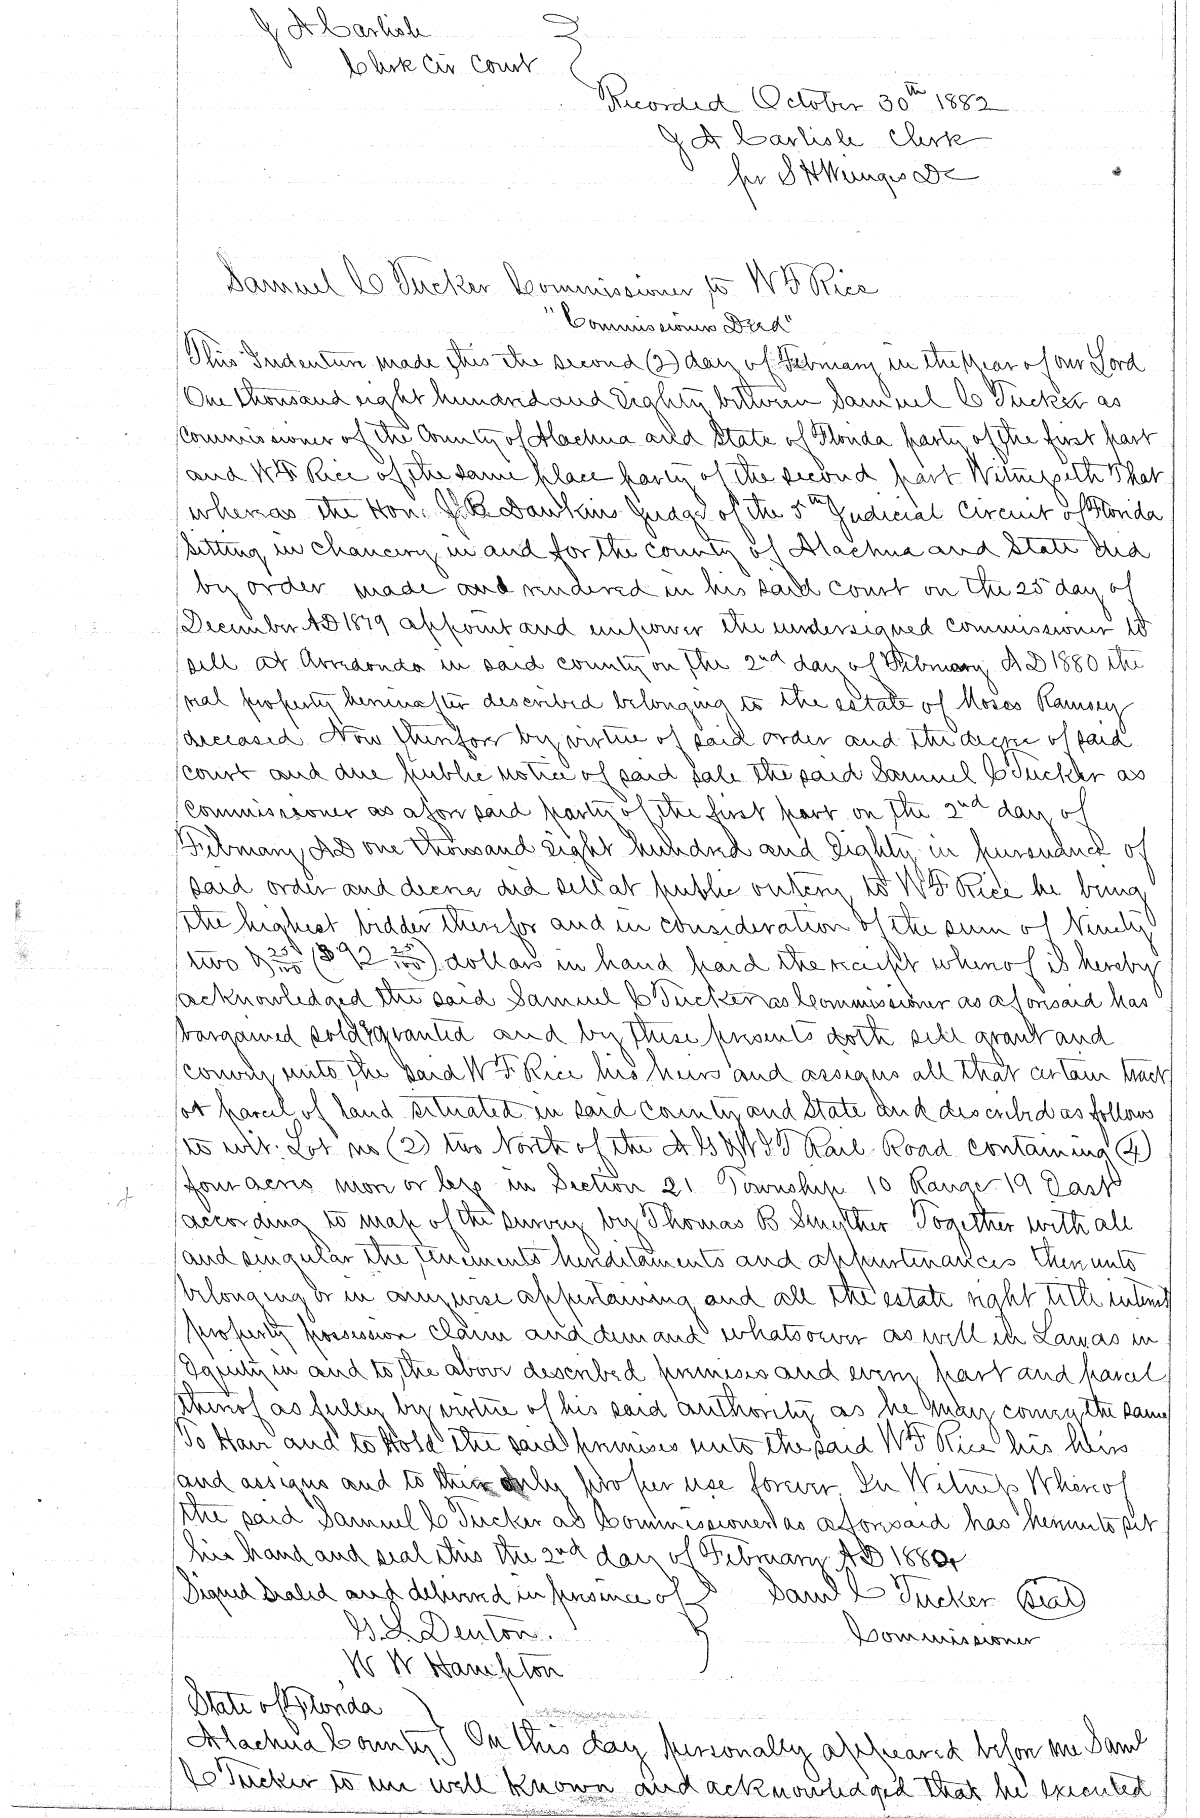 J A Carlisle
Clerk Cir Court
Recorded October 30th 1882
J A Carlisle Clerk
per S H Wienges DC
Samuel C Tucker Commissioner to W F Rice
"Commissioners Deed"
This Indenture made this the second (2) day of February in the Year of our Lord
One thousand eight hundred and Eighty between Samuel C Tucker as
Commissioner of the County of Alachua and State of Florida party of the first part
and W F Rice of the same place party of the second part Witnesseth That
whereas the Hon. J B Dawkins Judge of the 5th Judicial Circuit of Florida
Sitting in chancery in and for the county of Alachua and State did
by order made and rendered in his said court on the 25 day of
December AD 1879 appoint and empower the undersigned commissioner to
sell at Arredondo in said county on the 2nd day of February AD 1880 the
real property hereinafter described belonging to the estate of Moses Ramsey
deceased Now therefore by virtue of said order and the decree of said
court and due public notice of said sale the said Samuel C Tucker as
Commissioner as afore said party of the first part on the 2nd day of
February AD one thousand Eight hundred and Eighty in pursuance of
said order and decree did sell at public outcry to W F Rice he being
the highest bidder therefor and in consideration of the sum of Ninety
two & 25/100 ($92 25/100) dollars in hand paid the receipt whereof is hereby
acknowledged the said Samuel C Tucker as Commissioner as aforesaid has
bargained sold & granted and by these presents doth sell grant and
convey unto the said W F Rice his heirs and assigns all that certain tract
or parcel of land situated in said county and State and described as follows
to wit: Lot no (2) two North of the A G & W I T Rail Road containing (4)
four acres more or less in Section 21 Township 10 Range 19 East
according to map of the survey by Thomas B Smyther Together with all
and singular the tenements hereditaments and appurtenances thereunto
belonging or in anywise appertaining and all the estate right title interest
property possession claim and demand whatsoever as well in Law as in
Equity in and to the above described premises and every part and parcel
thereof as fully by virtue of his said authority as he may convey the same
To Have and to Hold the said premises unto the said W F Rice his heirs
and assigns and to their only proper use forever In Witness Whereof
the said Samuel C Tucker as Commissioner as aforesaid has hereunto set
his hand and seal this the 2nd day of February AD 1880
Signed Sealed and delivered in presence of Saml C Tucker Seal
G. L. Denton. Commissioner
W W Hampton
State of Florida
Alachua County) On this day personally appeared before me Saml
C Tucker to me well known and acknowledged that he executed